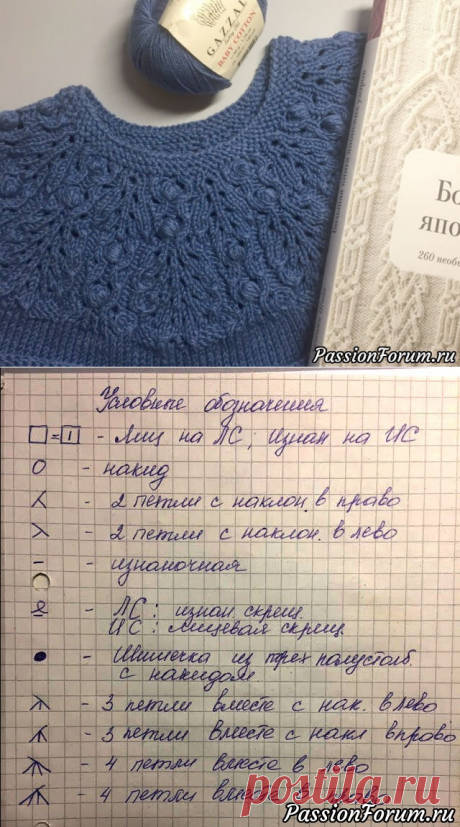 GAZZAL
BABY COTTON
Бо
япо
260 необы
PassionForum.ru
Условные обозначения
□=▯ - Лиц на ЛС; Изнан на ИС
O - накид
⋌ - 2 петли с наклон. в право
⋋ - 2 петли с наклон. в лево
– - изнаночная
- ЛС: изнан скрещ.
ИС: лицевая скрещ.
● - Шишечка из трех полустолб.
с накидом.
- 3 петли вместе с нак. влево
- 3 петли вместе с накл вправо
- 4 петли вместе в лево
- 4 петли вместе в право
postila.ru
PassionForum.ru